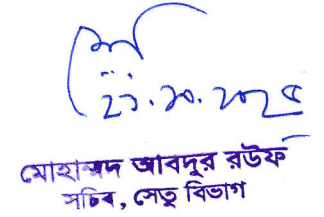 ২১.১০.২০২৫
মোহাম্মদ আবদুর রউফ
সচিব, সেতু বিভাগ